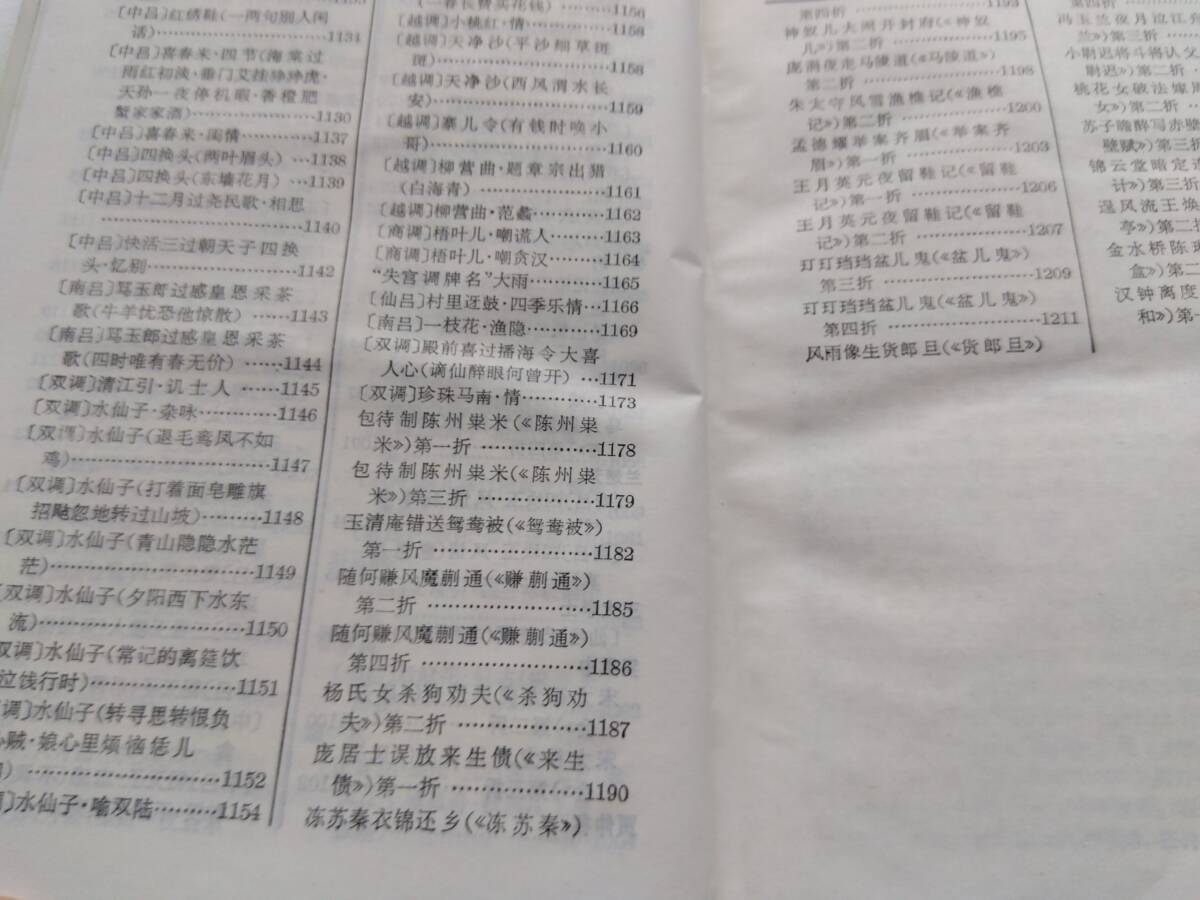 〔中吕〕红绣鞋(一两句别人闲
话)……1134
〔中吕〕喜春来·四节(海棠过
雨红初淡·垂门艾挂狰狰虎·
天孙一夜停机暇·香橙肥
蟹家家酒)……1130
〔中吕〕喜春来·闺情……1137
〔中吕〕四换头(两叶眉头)…1138
〔中吕〕四换头(东墙花月)…1139
〔中吕〕十二月过尧民歌·相思
……1140
〔中吕〕快活三过朝天子四换
头·忆别……1142
〔南吕〕骂玉郎过感皇恩采茶
歌(牛羊忧恐他惊散)……1143
〔南吕〕骂玉郎过感皇恩采茶
歌(四时唯有春无价)……1144
〔双调〕清江引·讥士人……1145
〔双调〕水仙子·杂咏……1146
〔双调〕水仙子(退毛鸾凤不如
鸡)……1147
〔双调〕水仙子(打着面皂雕旗
招飐忽地转过山坡)……1148
〔双调〕水仙子(青山隐隐水茫
茫)……1149
〔双调〕水仙子(夕阳西下水东
流)……1150
双调〕水仙子(常记的离筵饮
泣饯行时)……1151
调〕水仙子(转寻思转恨负
心贼·娘心里烦恼恁儿
)……1152
〕水仙子·喻双陆……1154
(一春长费买花钱)……1156
〔越调〕小桃红·情……1158
〔越调〕天净沙(平沙细草斑
斑)……1158
〔越调〕天净沙(西风渭水长
安)……1159
〔越调〕寨儿令(有钱时唤小
哥)……1160
〔越调〕柳营曲·题章宗出猎
(白海青)……1161
〔越调〕柳营曲·范蠡……1162
〔商调〕梧叶儿·嘲谎人……1163
〔商调〕梧叶儿·嘲贪汉……1164
“失宫调牌名”大雨……1165
〔仙吕〕村里迓鼓·四季乐情…1166
〔南吕〕一枝花·渔隐……1169
〔双调〕殿前喜过播海令大喜
人心(谪仙醉眼何曾开)…1171
〔双调〕珍珠马南·情……1173
包待制陈州粜米(《陈州粜
米》)第一折……1178
包待制陈州粜米(《陈州粜
米》)第三折……1179
玉清庵错送鸳鸯被(《鸳鸯被》)
第一折……1182
随何赚风魔蒯通(《赚蒯通》)
第二折……1185
随何赚风魔蒯通(《赚蒯通》)
第四折……1186
杨氏女杀狗劝夫(《杀狗劝
夫》)第二折……1187
庞居士误放来生债(《来生
债》)第一折……1190
冻苏秦衣锦还乡(《冻苏秦》)
第四折……1193
神奴儿大闹开封府(《神奴
儿》)第二折……1195
庞涓夜走马陵道(《马陵道》)
第二折……1198
朱太守风雪渔樵记(《渔樵
记》)第二折……1200
孟德耀举案齐眉(《举案齐
眉》)第一折……1203
王月英元夜留鞋记(《留鞋
记》)第一折……1206
王月英元夜留鞋记(《留鞋
记》)第二折……1207
玎玎珰珰盆儿鬼(《盆儿鬼》)
第三折……1209
玎玎珰珰盆儿鬼(《盆儿鬼》)
第四折……1211
风雨像生货郎旦(《货郎旦》)
第四折
冯玉兰夜月泣江
兰》)第三折
小尉迟将斗将认父
尉迟》)第二折
桃花女破法嫁
女》)第二折
苏子瞻醉写赤壁
壁赋》)第三折
锦云堂暗定
计》)第三折
逞风流王焕
亭》)第二
金水桥陈琳
盒》)第二
汉钟离度
和》)第一